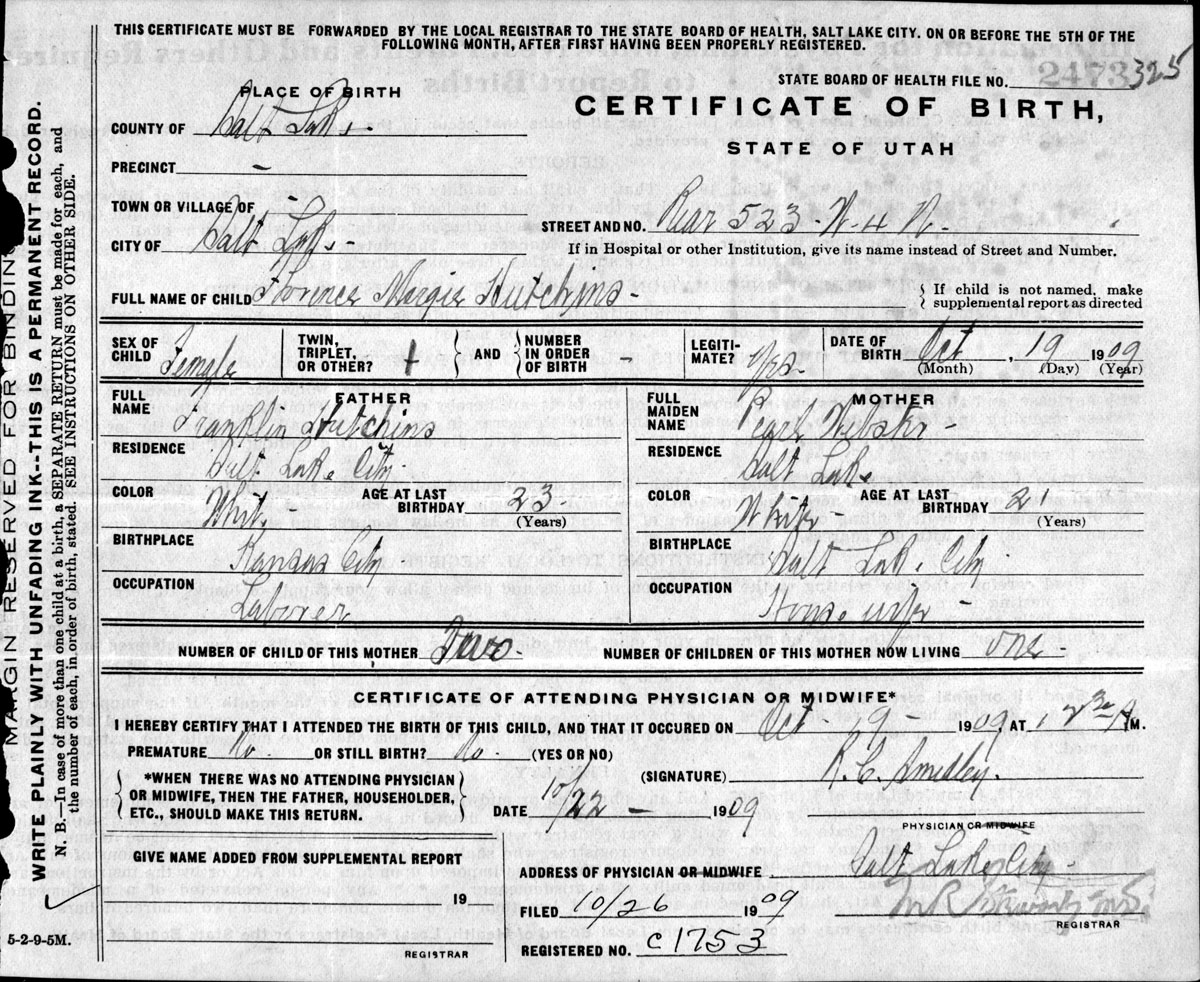 THIS CERTIFICATE MUST BE FORWARDED BY THE LOCAL REGISTRAR TO THE STATE BOARD OF HEALTH, SALT LAKE CITY. ON OR BEFORE THE 5TH OF THE
FOLLOWING MONTH, AFTER FIRST HAVING BEEN PROPERLY REGISTERED.
STATE BOARD OF HEALTH FILE NO. 2473 325
PLACE OF BIRTH
CERTIFICATE OF BIRTH,
STATE OF UTAH
COUNTY OF Salt Lake
PRECINCT -
TOWN OR VILLAGE OF -
STREET AND NO. Rear 523 - W - 4 N -
CITY OF Salt Lake
If in Hospital or other institution, give its name instead of Street and Number.
FULL NAME OF CHILD Florence Margie Hutchins -
{ If child is not named, make
supplemental report as directed
SEX OF CHILD Female
TWIN, TRIPLET, OR OTHER?
} AND {
NUMBER IN ORDER OF BIRTH -
LEGITI-MATE? Yes -
DATE OF BIRTH Oct, 19 1909
(Month) (Day) (Year)
FATHER
FULL NAME Franklin Hutchins
RESIDENCE Salt Lake City
COLOR White
AGE AT LAST BIRTHDAY 23 (Years)
BIRTHPLACE Kansas City
OCCUPATION Laborer
MOTHER
FULL MAIDEN NAME Pearl Webster -
RESIDENCE Salt Lake
COLOR White -
AGE AT LAST BIRTHDAY (Years)
BIRTHPLACE Salt Lake City
OCCUPATION House wife -
NUMBER OF CHILD OF THIS MOTHER Two -
NUMBER OF CHILDREN OF THIS MOTHER NOW LIVING one -
CERTIFICATE OF ATTENDING PHYSICIAN OR MIDWIFE*
I HEREBY CERTIFY THAT I ATTENDED THE BIRTH OF THIS CHILD, AND THAT IT OCCURED ON Oct 19 - 1909 AT A M.
PREMATURE No - OR STILL BIRTH? No - (YES OR NO)
{ *WHEN THERE WAS NO ATTENDING PHYSICIAN
OR MIDWIFE, THEN THE FATHER, HOUSEHOLDER,
ETC., SHOULD MAKE THIS RETURN. }
(SIGNATURE) R. C. Smedley.
DATE 10/22 - 1909
PHYSICIAN OR MIDWIFE
GIVE NAME ADDED FROM SUPPLEMENTAL REPORT
19
REGISTRAR
ADDRESS OF PHYSICIAN OR MIDWIFE Salt Lake City -
FILED 10/26 1909
REGISTRAR
REGISTERED NO. C1753
5-2-9-5M.
MARGIN RESERVED FOR BINDING
WRITE PLAINLY WITH UNFADING INK--THIS IS A PERMANENT RECORD.
N. B.--In case of more than one child at a birth, a SEPARATE RETURN must be made for each, and
the number of each, in order of birth, stated. SEE INSTRUCTIONS ON OTHER SIDE.